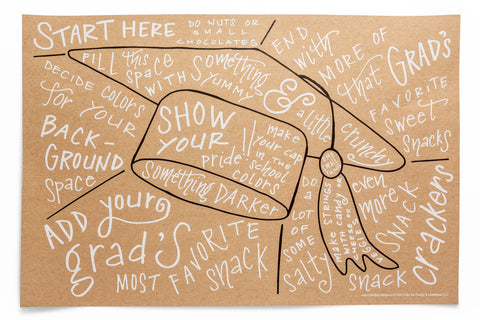 START HERE
DO NUTS OR
SMALL
CHOCOLATES
FILL this
space
WITH
something
YUMMY
&
a little
crunchy
END
with
MORE OF
that GRAD'S
FAVORITE
sweet
snacks
DECIDE COLORS
for YOUR
BACK-
GROUND
space
SHOW
YOUR
pride
make
your cap
in the
school
colors
something DARKER
ADD your
grad's
MOST FAVORITE
snack
DO A
LOT
OF
SOME
salty
make STRINGS
WITH candy OR
CHEESE OR
VEGGIE
even
more
SNACK
snack
crackers